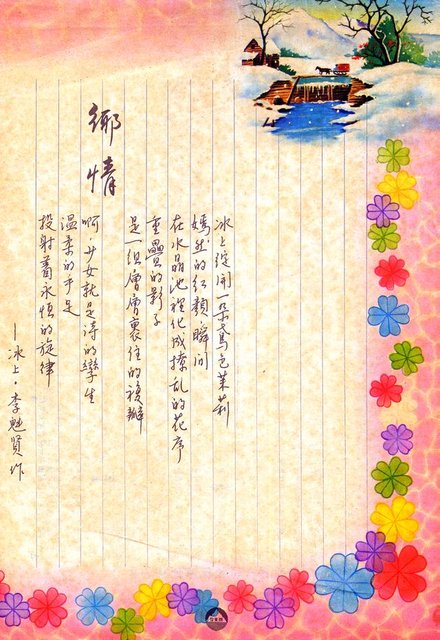 鄉情
冰上綻開一朵鳶色茉莉
嫣然的紅顏瞬間
在水晶池裡化成撩亂的花序
重疊的影子
是一組層層裹住的複瓣
啊，少女就是詩的孿生
溫柔的于是
投射著永恆的旋律
—冰上·李魁賢作